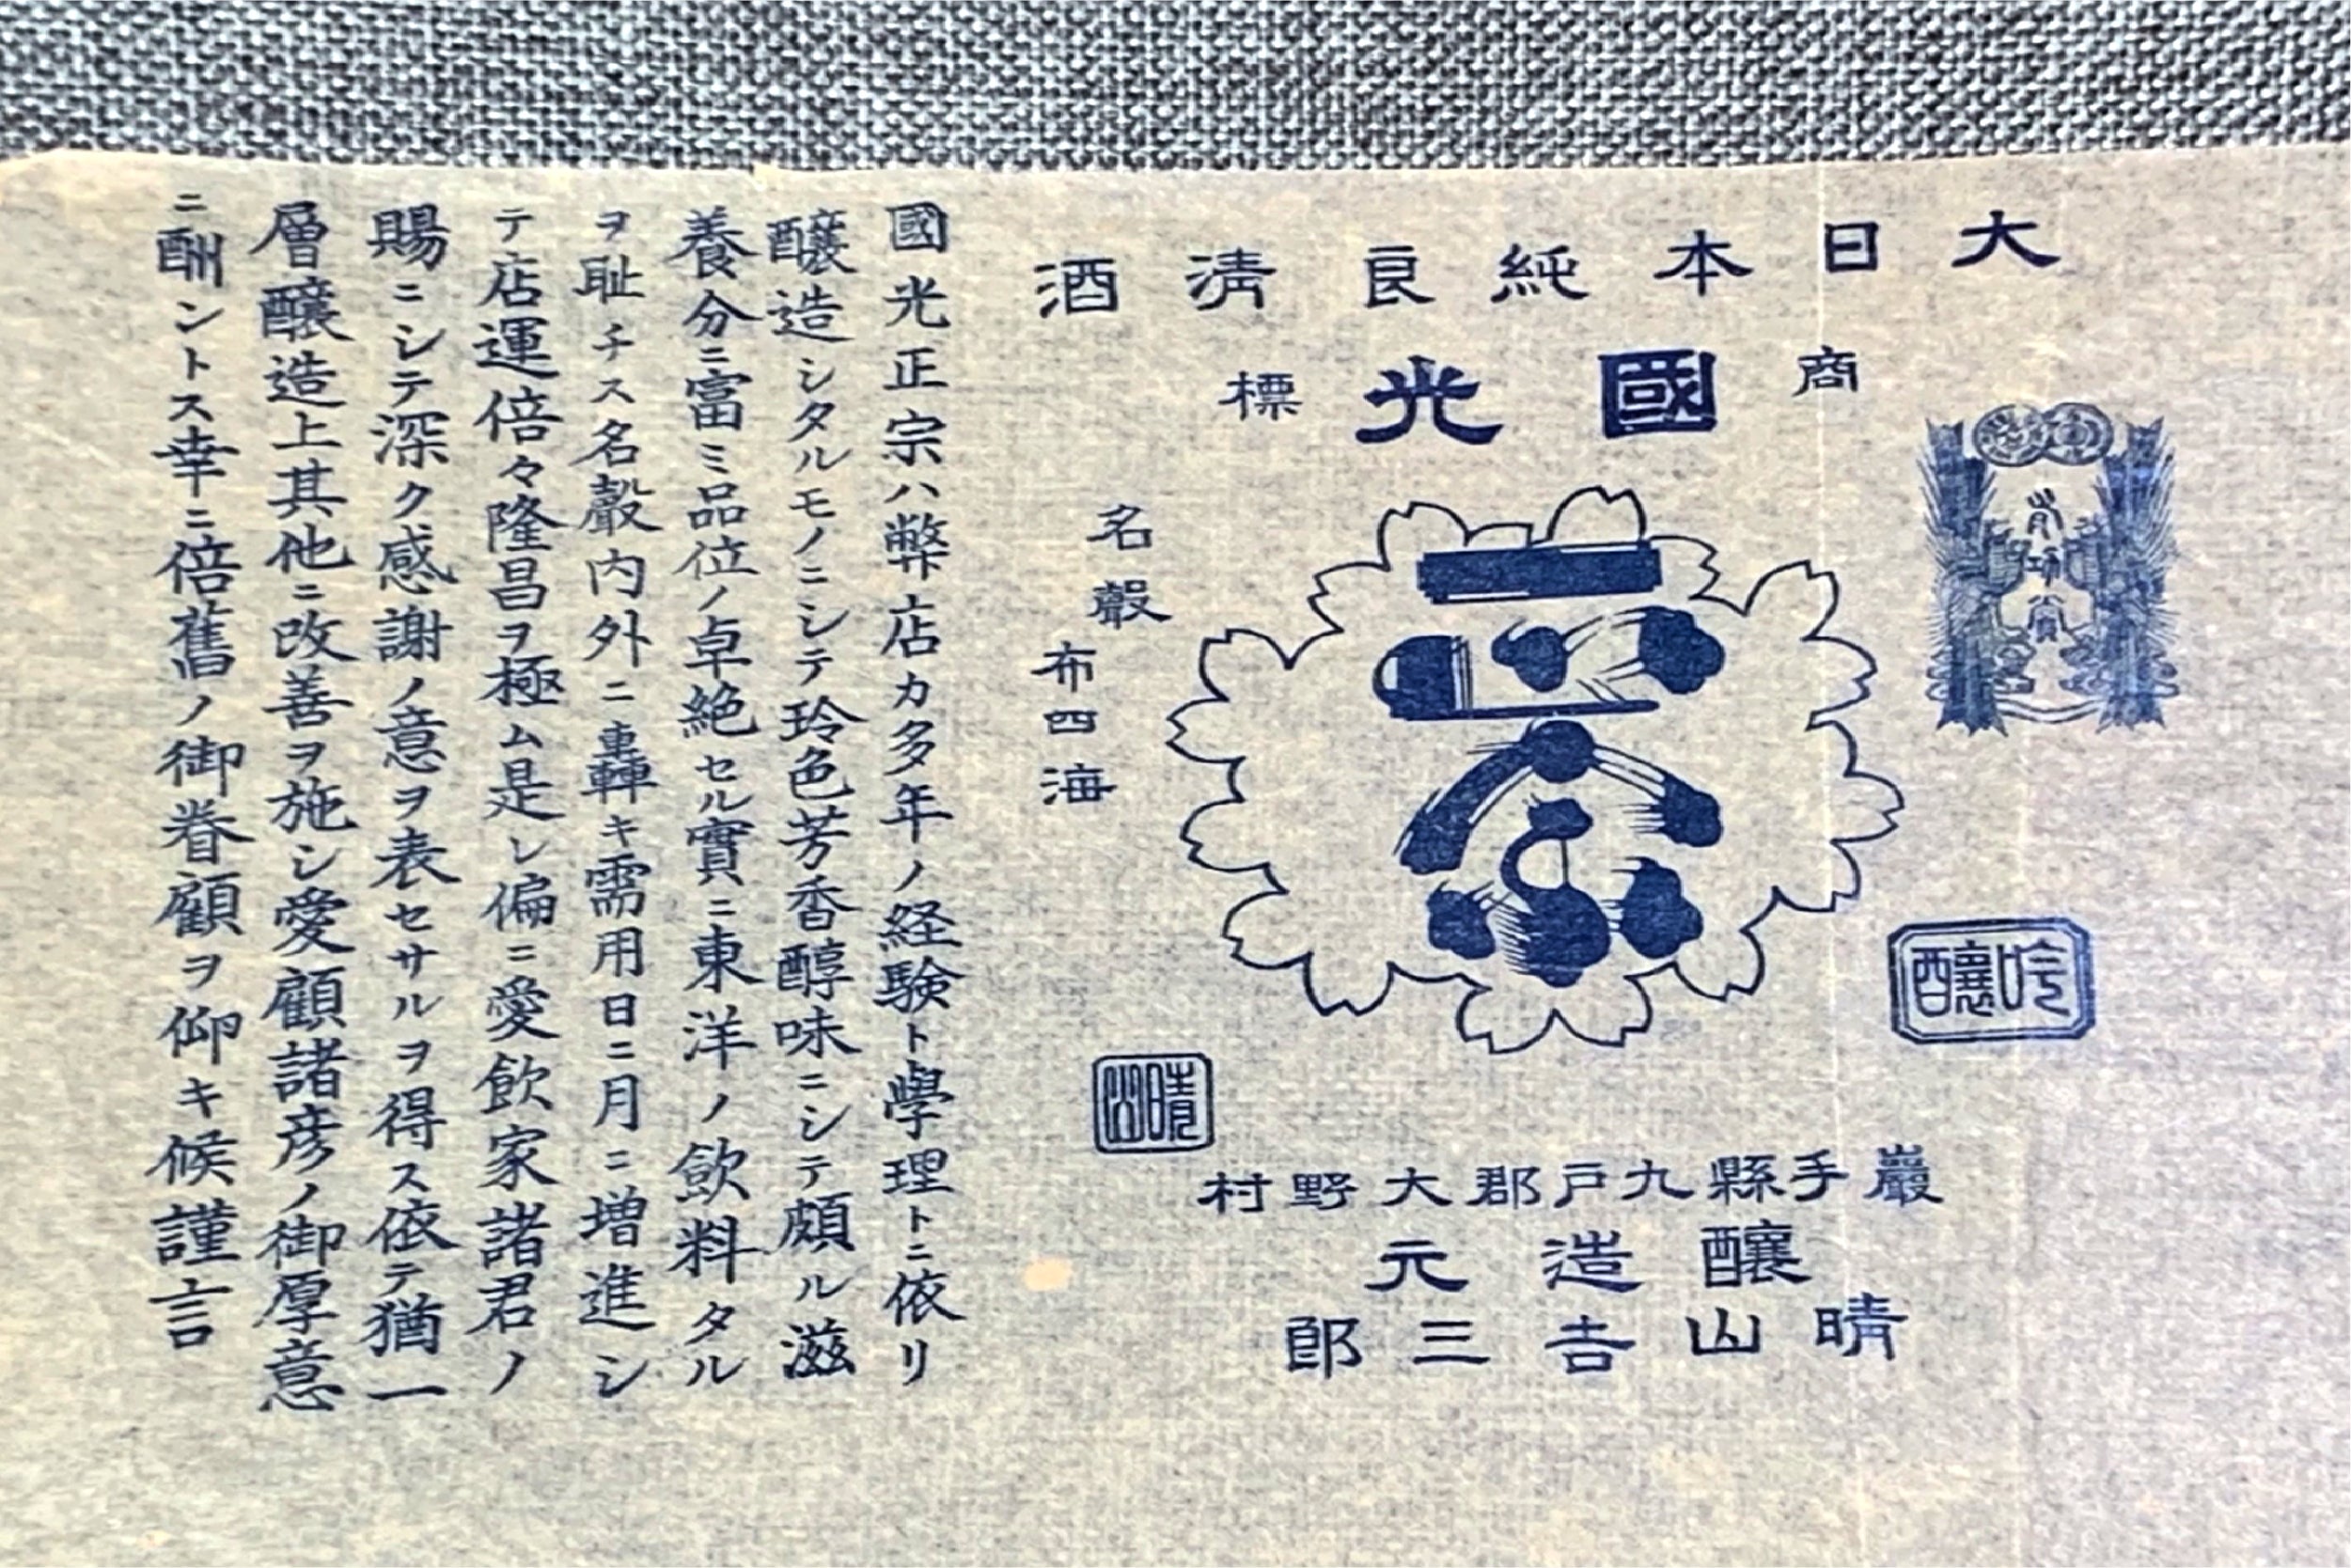 大日本純良清酒
商國光標
正宗
名聲布四海
吟醸
晴山
巖手縣九戸郡大野村
醸造元
晴山吉三郎
國光正宗ハ弊店カ多年ノ経験ト學理トニ依リ
醸造シタルモノニシテ玲色芳香醇味ニシテ頗ル滋
養分ニ富ミ品位ノ卓絶セル實ニ東洋ノ飲料タル
ヲ耻チス名聲内外ニ轟キ需用日ニ月ニ増進シ
テ店運倍々隆昌ヲ極ム是レ偏ニ愛飲家諸君ノ
賜ニシテ深ク感謝ノ意ヲ表セサルヲ得ス依テ猶一
層醸造上其他ニ改善ヲ施シ愛顧諸彦ノ御厚意
ニ酬ントス幸ニ倍舊ノ御眷顧ヲ仰キ候謹言